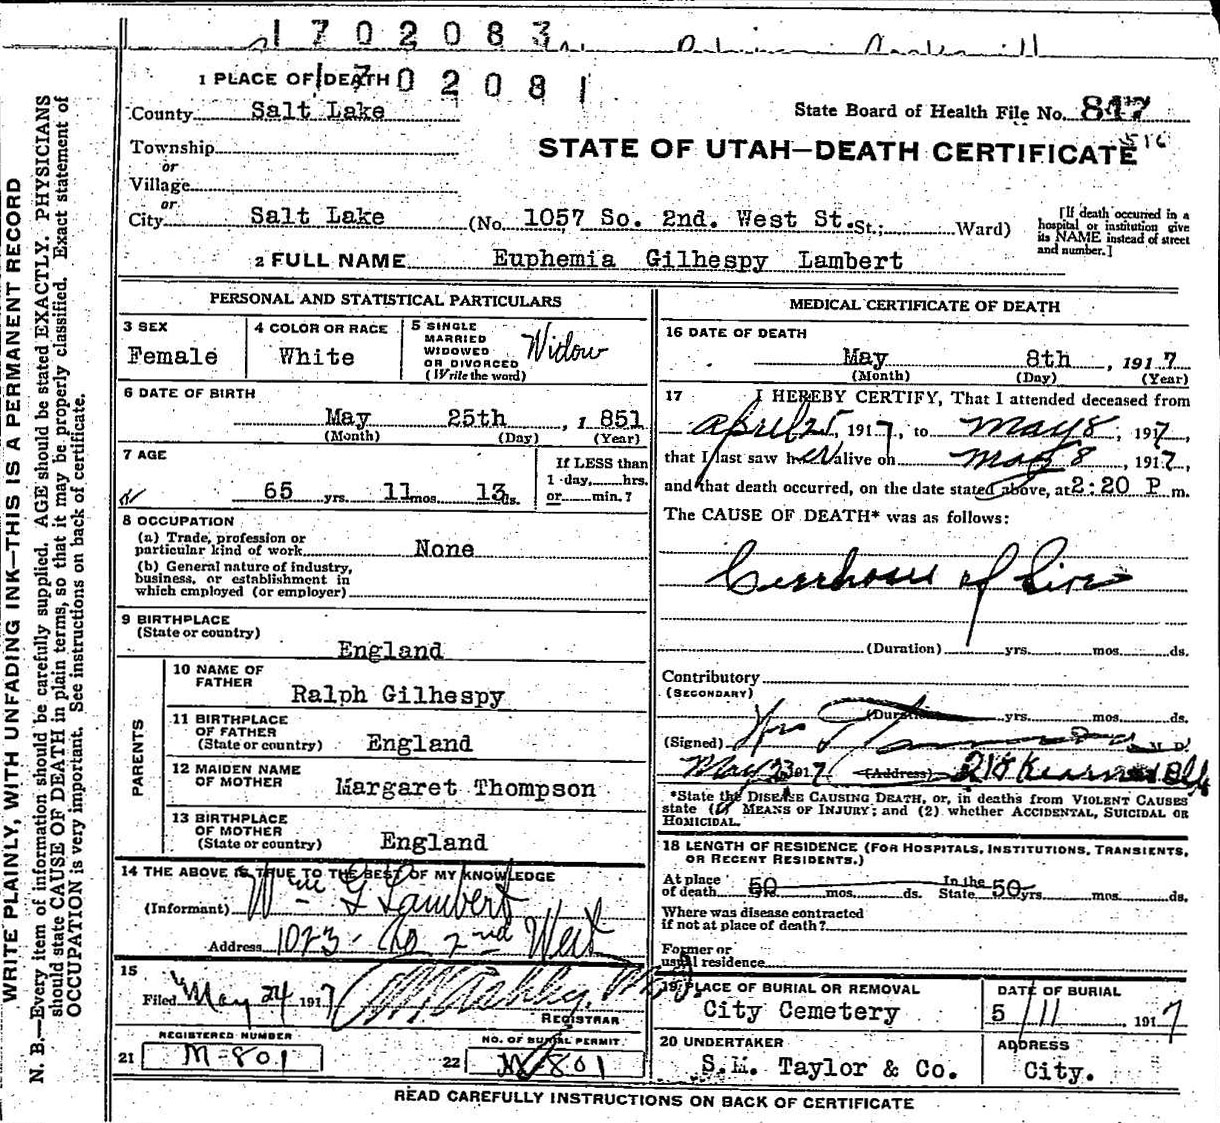 1702083
1702081
1 PLACE OF DEATH
County Salt Lake
State Board of Health File No. 847
516
Township
or
Village
or
City Salt Lake (No. 1057 So. 2nd. West St. St.; Ward)
STATE OF UTAH—DEATH CERTIFICATE
[If death occurred in a
hospital or institution give
its NAME instead of street
and number.]
2 FULL NAME Euphemia Gilhespy Lambert
PERSONAL AND STATISTICAL PARTICULARS
3 SEX
Female
4 COLOR OR RACE
White
5 SINGLE
MARRIED
WIDOWED
OR DIVORCED
(Write the word)
Widow
6 DATE OF BIRTH
May 25th, 1 851
(Month) (Day) (Year)
7 AGE
65 yrs. 11 mos. 13 ds.
If LESS than
1 day, hrs.
or min.?
8 OCCUPATION
(a) Trade, profession or
particular kind of work None
(b) General nature of industry,
business, or establishment in
which employed (or employer)
9 BIRTHPLACE
(State or country)
England
PARENTS
10 NAME OF
FATHER
Ralph Gilhespy
11 BIRTHPLACE
OF FATHER
(State or country) England
12 MAIDEN NAME
OF MOTHER Margaret Thompson
13 BIRTHPLACE
OF MOTHER
(State or country) England
14 THE ABOVE IS TRUE TO THE BEST OF MY KNOWLEDGE
(Informant) Wm G Lambert
Address 1023 - So 2nd West
15
Filed May 24 1917
REGISTRAR
REGISTERED NUMBER
21 M-801
NO. OF BURIAL PERMIT
22 M-801
MEDICAL CERTIFICATE OF DEATH
16 DATE OF DEATH
May 8th, 1917
(Month) (Day) (Year)
17 I HEREBY CERTIFY, That I attended deceased from
April 25, 1917, to May 8, 197,
that I last saw her alive on May 8, 1917,
and that death occurred, on the date stated above, at 2:20 P m.
The CAUSE OF DEATH* was as follows:
Cirrhosis of Liver
(Duration) yrs. mos. ds.
Contributory
(SECONDARY)
(Duration) yrs. mos. ds.
(Signed) M. D.
May 23 1917 (Address) 218 Kearns Bldg
*State the DISEASE CAUSING DEATH, or, in deaths from VIOLENT CAUSES
state (1) MEANS OF INJURY; and (2) whether ACCIDENTAL, SUICIDAL OR
HOMICIDAL.
18 LENGTH OF RESIDENCE (FOR HOSPITALS, INSTITUTIONS, TRANSIENTS,
OR RECENT RESIDENTS.)
At place
of death 50 mos. ds. In the
State 50 yrs. mos. ds.
Where was disease contracted
if not at place of death?
Former or
usual residence
19 PLACE OF BURIAL OR REMOVAL
City Cemetery
DATE OF BURIAL
5/11, 1917
20 UNDERTAKER
S.M. Taylor & Co.
ADDRESS
City.
READ CAREFULLY INSTRUCTIONS ON BACK OF CERTIFICATE
WRITE PLAINLY, WITH UNFADING INK—THIS IS A PERMANENT RECORD
N. B.—Every item of information should be carefully supplied. AGE should be stated EXACTLY. PHYSICIANS
should state CAUSE OF DEATH in plain terms, so that it may be properly classified. Exact statement of
OCCUPATION is very important. See instructions on back of certificate.